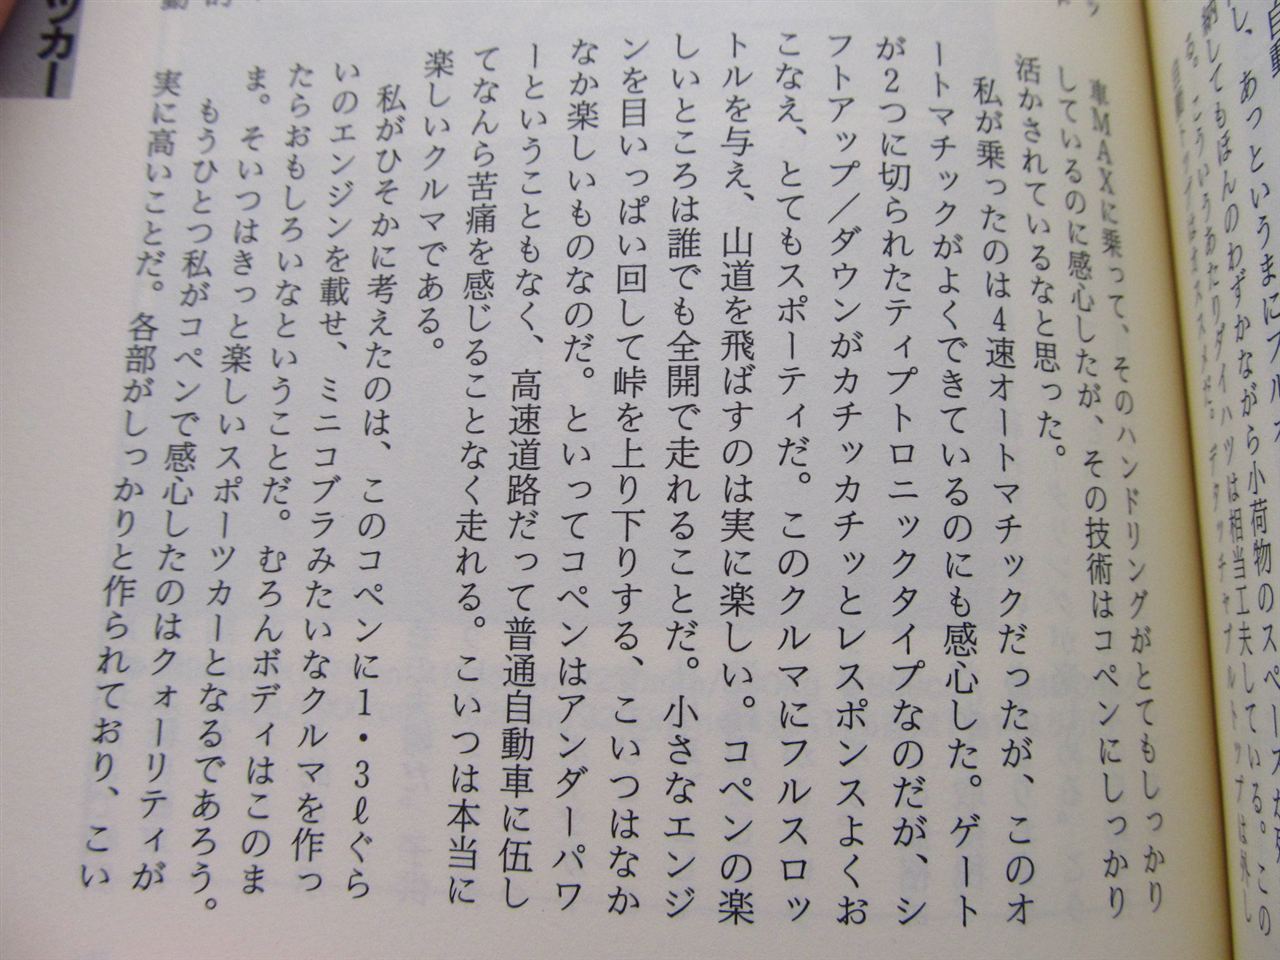 車MAXに乗って、そのハンドリングがとてもしっかり
しているのに感心したが、その技術はコペンにしっかり
活かされているなと思った。
私が乗ったのは4速オートマチックだったが、このオ
ートマチックがよくできているのにも感心した。ゲート
が2つに切られたティプトロニックタイプなのだが、シ
フトアップ／ダウンがカチッカチッとレスポンスよくお
こなえ、とてもスポーティだ。このクルマにフルスロッ
トルを与え、山道を飛ばすのは実に楽しい。コペンの楽
しいところは誰でも全開で走れることだ。小さなエンジ
ンを目いっぱい回して峠を上り下りする、こいつはなか
なか楽しいものなのだ。といってコペンはアンダーパワ
ーということもなく、高速道路だって普通自動車に伍し
てなんら苦痛を感じることなく走れる。こいつは本当に
楽しいクルマである。
私がひそかに考えたのは、このコペンに1・3ℓぐら
いのエンジンを載せ、ミニコブラみたいなクルマを作っ
たらおもしろいなということだ。むろんボディはこのま
ま。そいつはきっと楽しいスポーツカーとなるであろう。
もうひとつ私がコペンで感心したのはクォーリティが
実に高いことだ。各部がしっかりと作られており、こい
ツカー